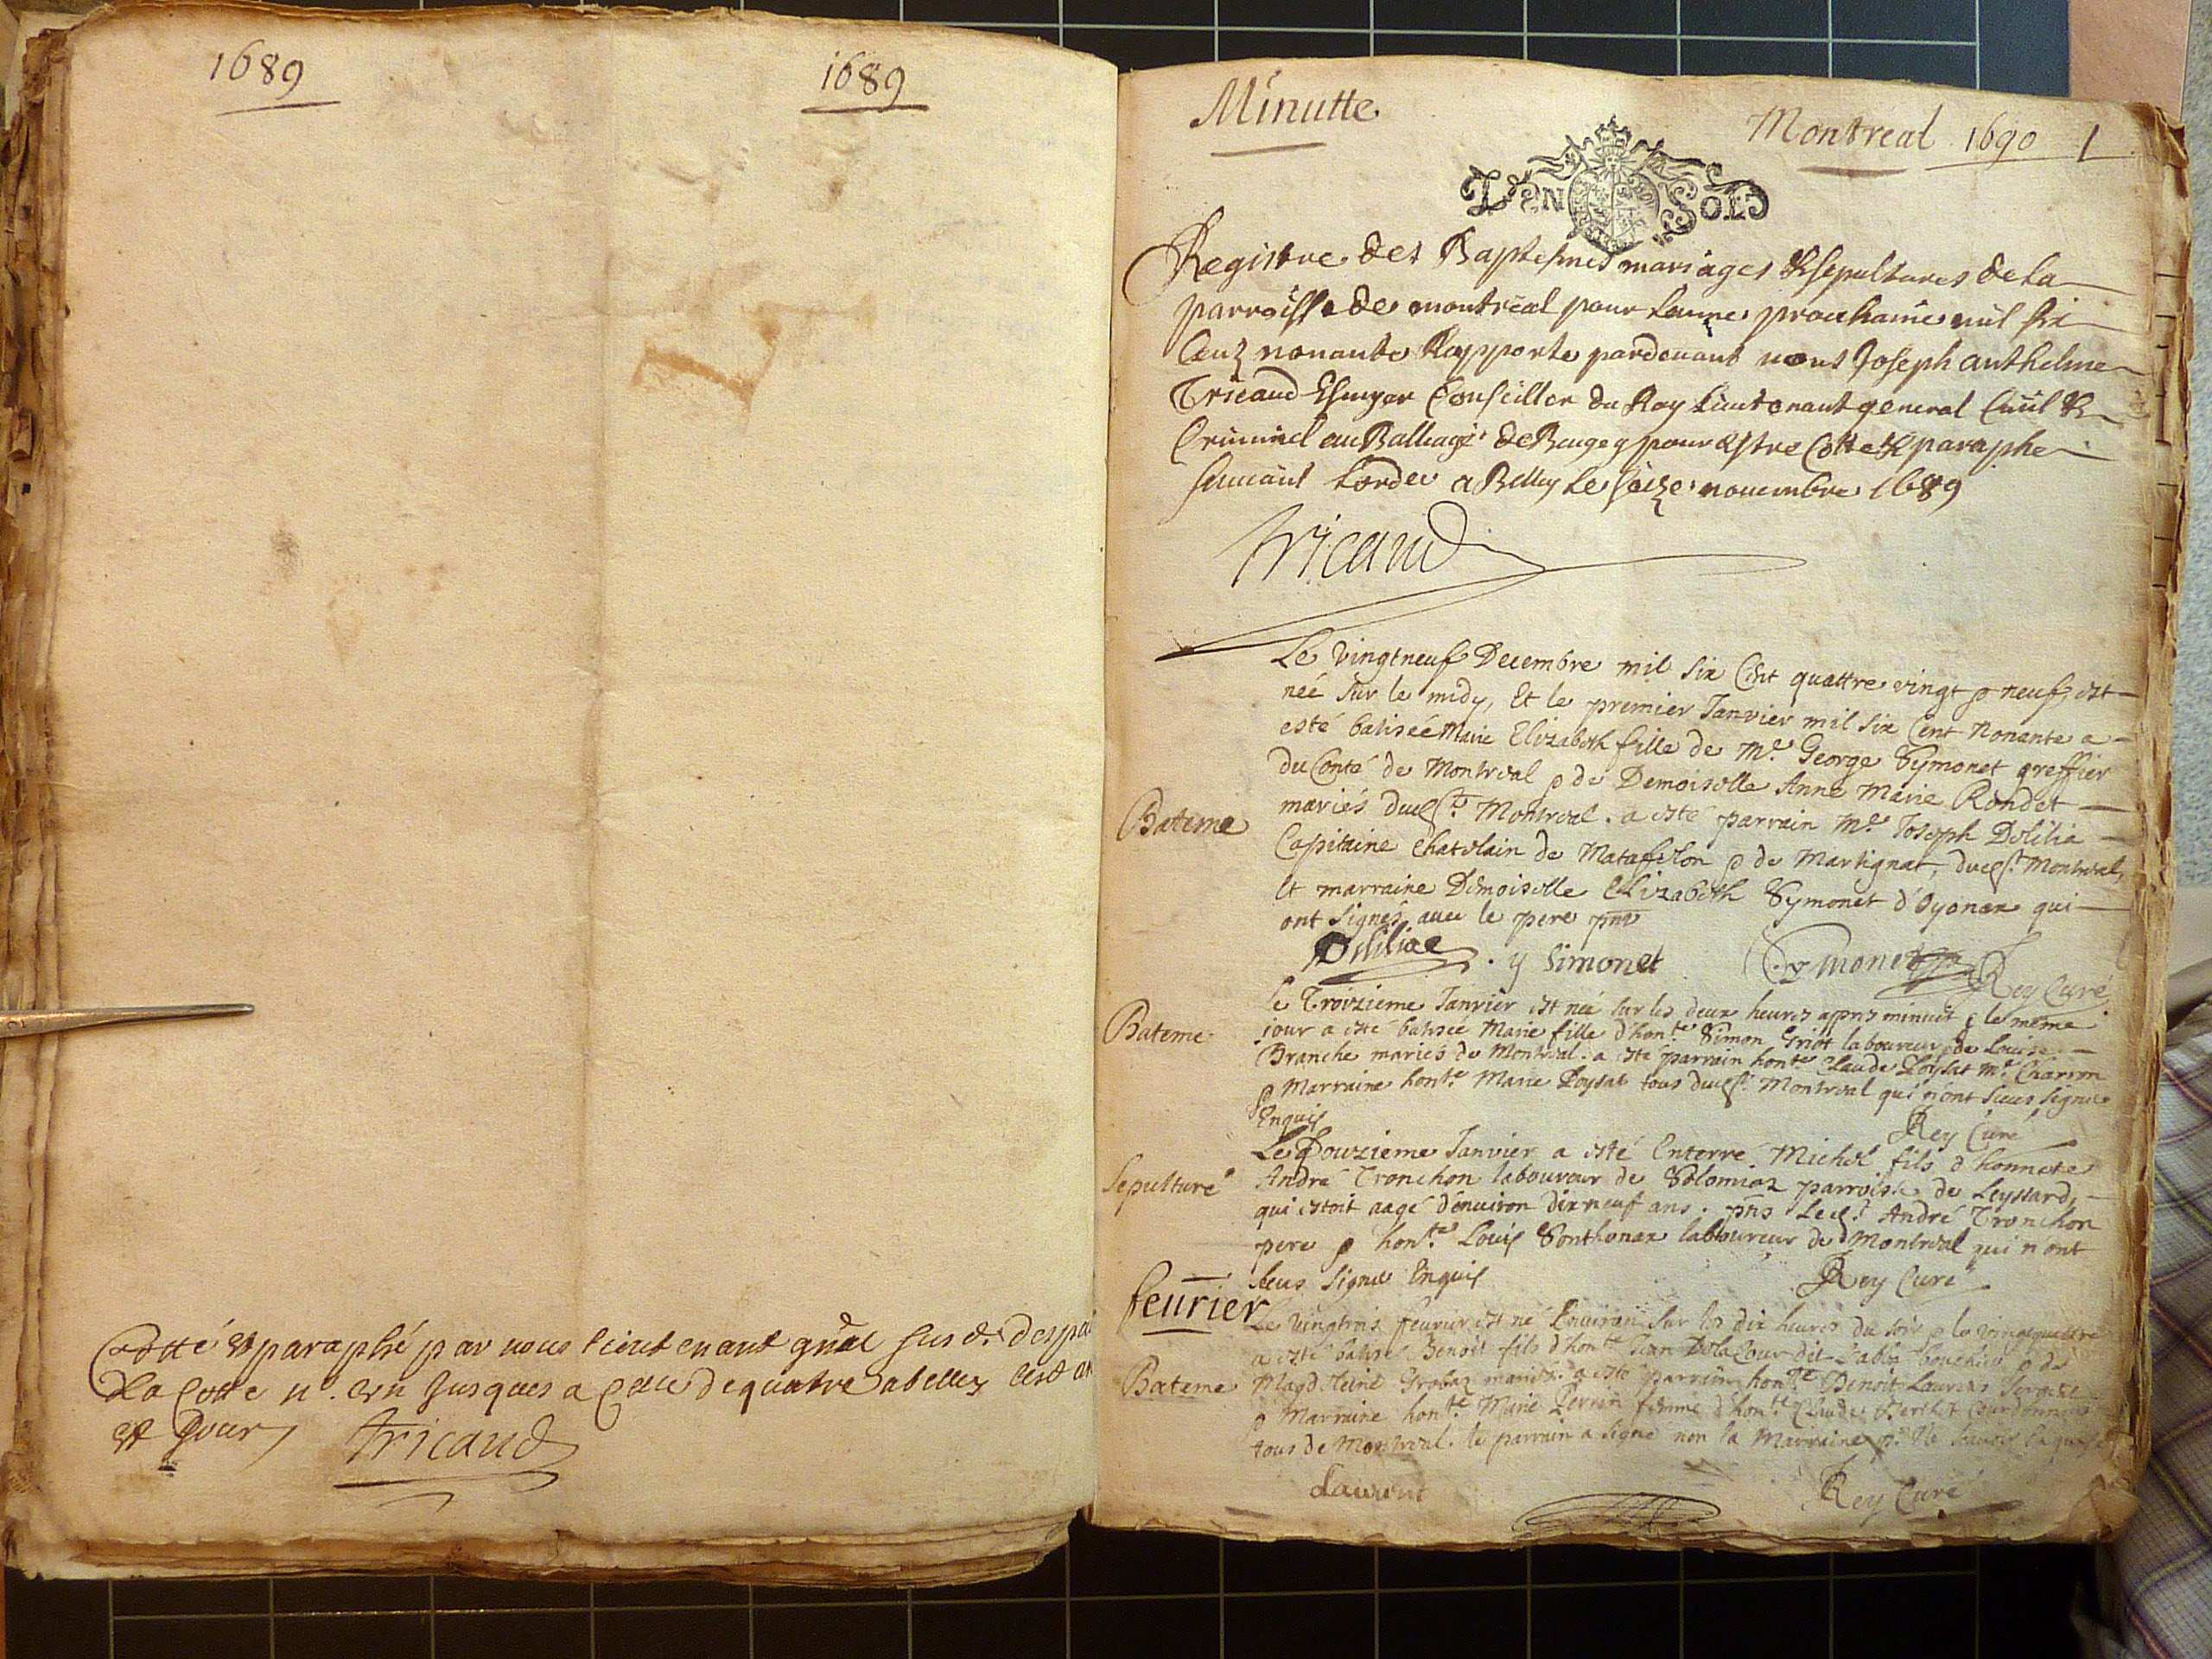 1689
1689
Cotté et paraphé par nous Lieutenant gñal susd.
de la Cotte nº. un Jusques a Celle de quatre a belley
et Jour
Tricaud
Minutte
Montreal 1690 1
UN SOL
Registre des Baptesmes mariages & sepultures de la
parroisse de montreal pour lannee prochaine mil six
Centz nonante Rapporte pardeuant nous Joseph anthelme
Tricaud Escuyer Conseiller du Roy Lieutenant general Ciuil &
Criminel au Balliage de Beugey pour estre Cotte & paraphe
suiuant Lordre a Belley le seize nouembre 1689
Tricaud
Le vingtneuf Decembre mil six Cent quattre vingt & neuf, est
née sur le midy, Et le premier Janvier mil six Cent Nonante a
esté batisée Marie Elizabeth fille de Mᵉ. George Symonet greffier
du Conté de Montreal & de Demoiselle Anne Marie Rondet
Bateme
mariés dud. Montreal. a esté parrain Mᵉ. Joseph Delilia
Capitaine Chatelain de Matafelon & de Martignat, dud. Montreal,
et marraine Demoiselle Elizabeth Symonet d'Oyonax qui
ont signés auec le pere pñt
Delilia . y Simonet Symonet Rey Curé
Bateme
le Troizieme Janvier est née sur les deux heures apres minuit & le même
jour a esté batisée Marie fille d'honᵗᵉ. Simon Griot laboureur & de Louise
Branche mariés de Montreal. a esté parrain honᵗᵉ Claude Poysat Mᵉ. Charron
& Marraine honᵗᵉ. Marie Poysat tous dud. Montreal qui n'ont sceus signer
Enquis
Rey Curé
Le Douzieme Janvier a esté Enterré Michel fils d'honnete
Sepulture
André Tronchon laboureur de Solomiaz parroisse de Leyssard,
qui estoit aagé d'enuiron dix neuf ans. pñs led. André Tronchon
pere & honᵗᵉ. Louis Sonthonax laboureur de Montreal qui n'ont
sceus signer Enquis
Rey Curé
feurier
Le vingtrois feurier est né Enuiron sur les dix heures du soir & le vingtquattre
a esté batisé Benoit fils d'honᵗᵉ Jean Delacour dit boucher & de
Bateme
Magdeleine Grobaz mariés. a esté parrain honᵗᵉ. Benoit Laurent
& Marraine honᵗᵉ. Marie Perrin femme d'honᵗᵉ. Claude
tous de Montreal. le parrain a signé non la Marraine
Laurent
Rey Curé